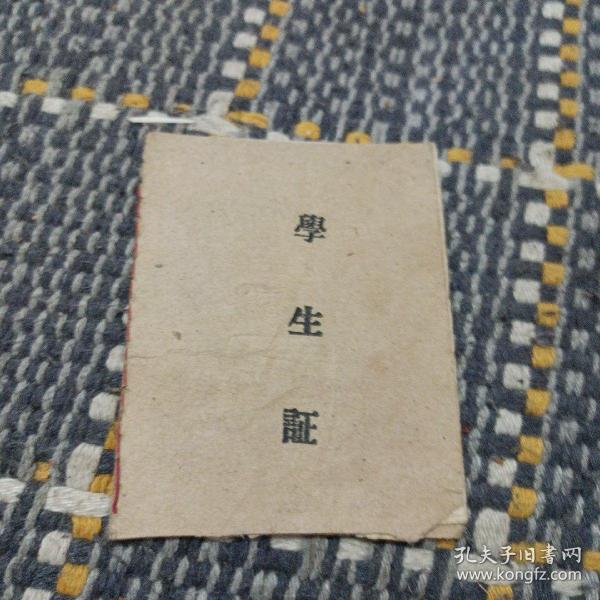 學生証
孔夫子旧書网
www.kongfz.com